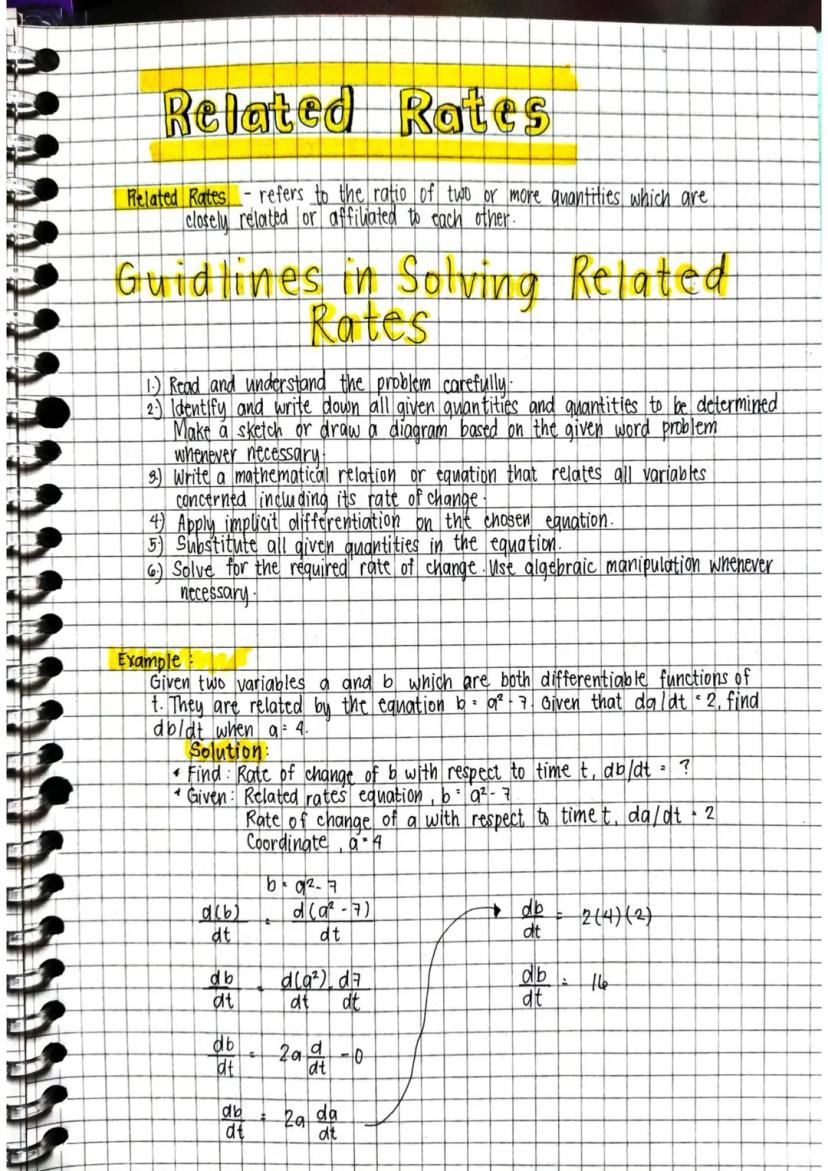 Related Rates
Related Rates - refers to the ratio of two or more quantities which are
closely related or affiliated to each other.
Guidlines in Solving Related
Rates
1.) Read and understand the problem carefully.
2.) Identify and write down all given quantities and quantities to be determined
Make a sketch or draw a diagram based on the given word problem
whenever necessary.
3.) Write a mathematical relation or equation that relates all variables
concerned including its rate of change.
4.) Apply implicit differentiation on the chosen equation.
5.) Substitute all given quantities in the equation.
6.) Solve for the required rate of change. Use algebraic manipulation whenever
necessary.
Example:
Given two variables a and b which are both differentiable functions of
t. They are related by the equation b = a² - 7. Given that da/dt = 2, find
db/dt when a = 4.
Solution:
• Find: Rate of change of b with respect to time t, db/dt = ?
• Given: Related rates equation, b = a² - 7
Rate of change of a with respect to time t, da/dt = 2
Coordinate, a = 4
b = a² - 7
d(b)/dt = d(a² - 7)/dt
db/dt = d(a²)/dt - d7/dt
db/dt = 2a d/dt - 0
db/dt = 2a da/dt
db/dt = 2(4)(2)
db/dt = 16